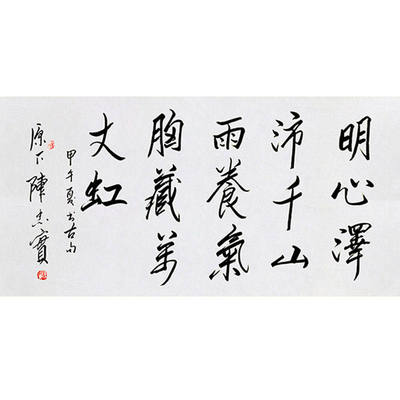 明心澤
沛千山
雨養氣
胸藏萬
丈虹
甲午夏書古句
原下陳忠實